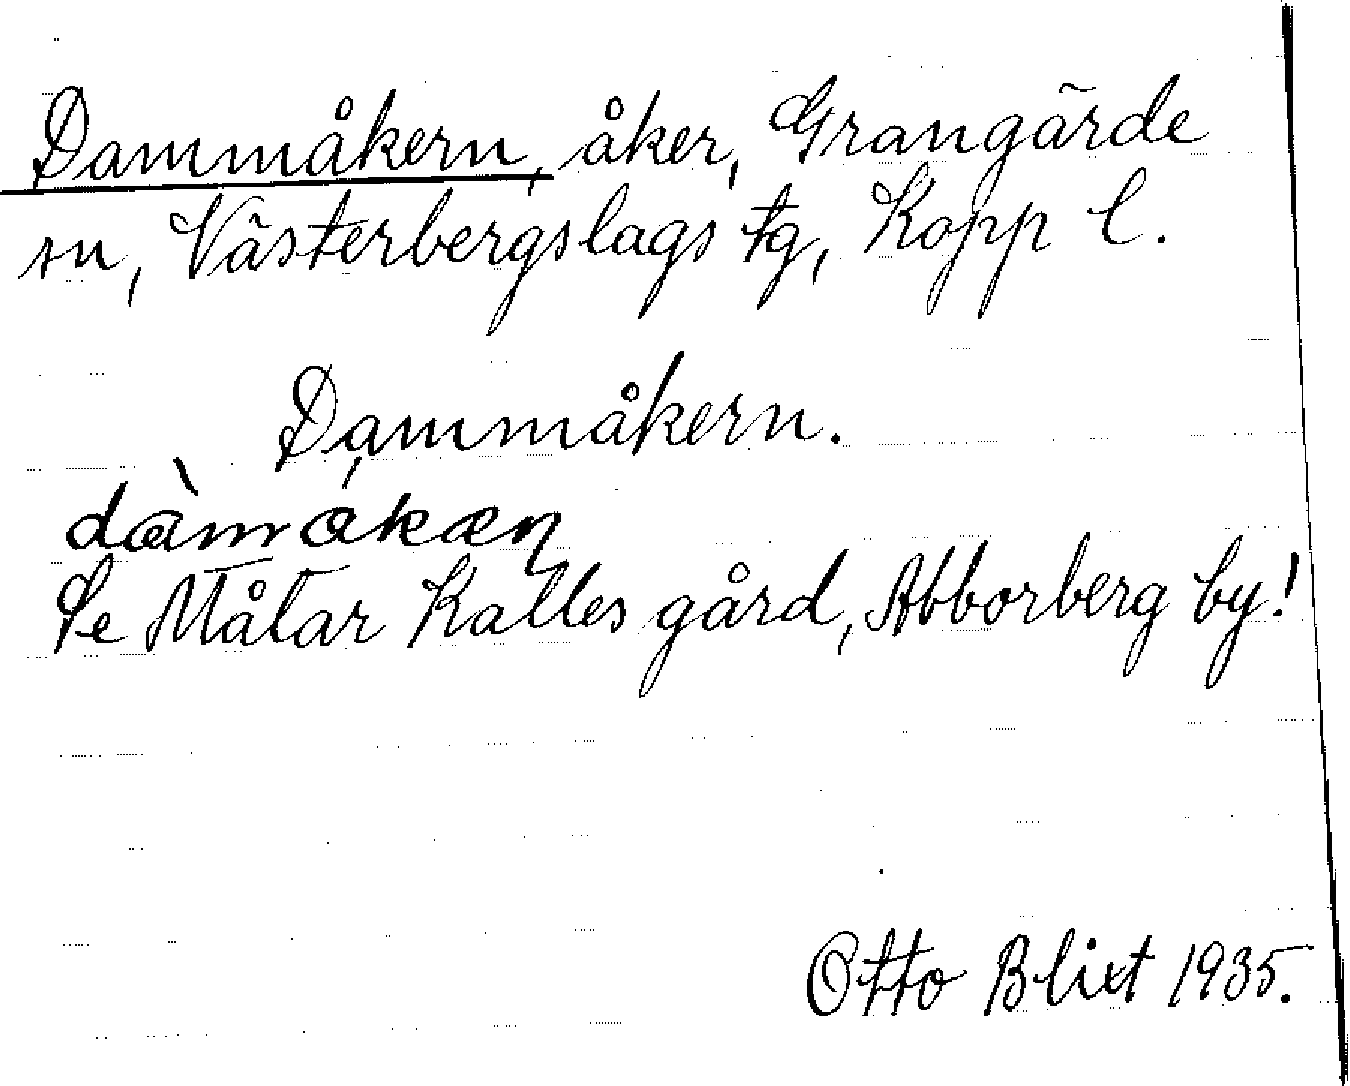 Dammåkern, åker, Grangärde
sn, Västerbergslags tg, Kopp l.
Dammåkern.
dàmakæn
Se Måtar Kalles gård, Abborberg by!
Otto Blixt 1935.